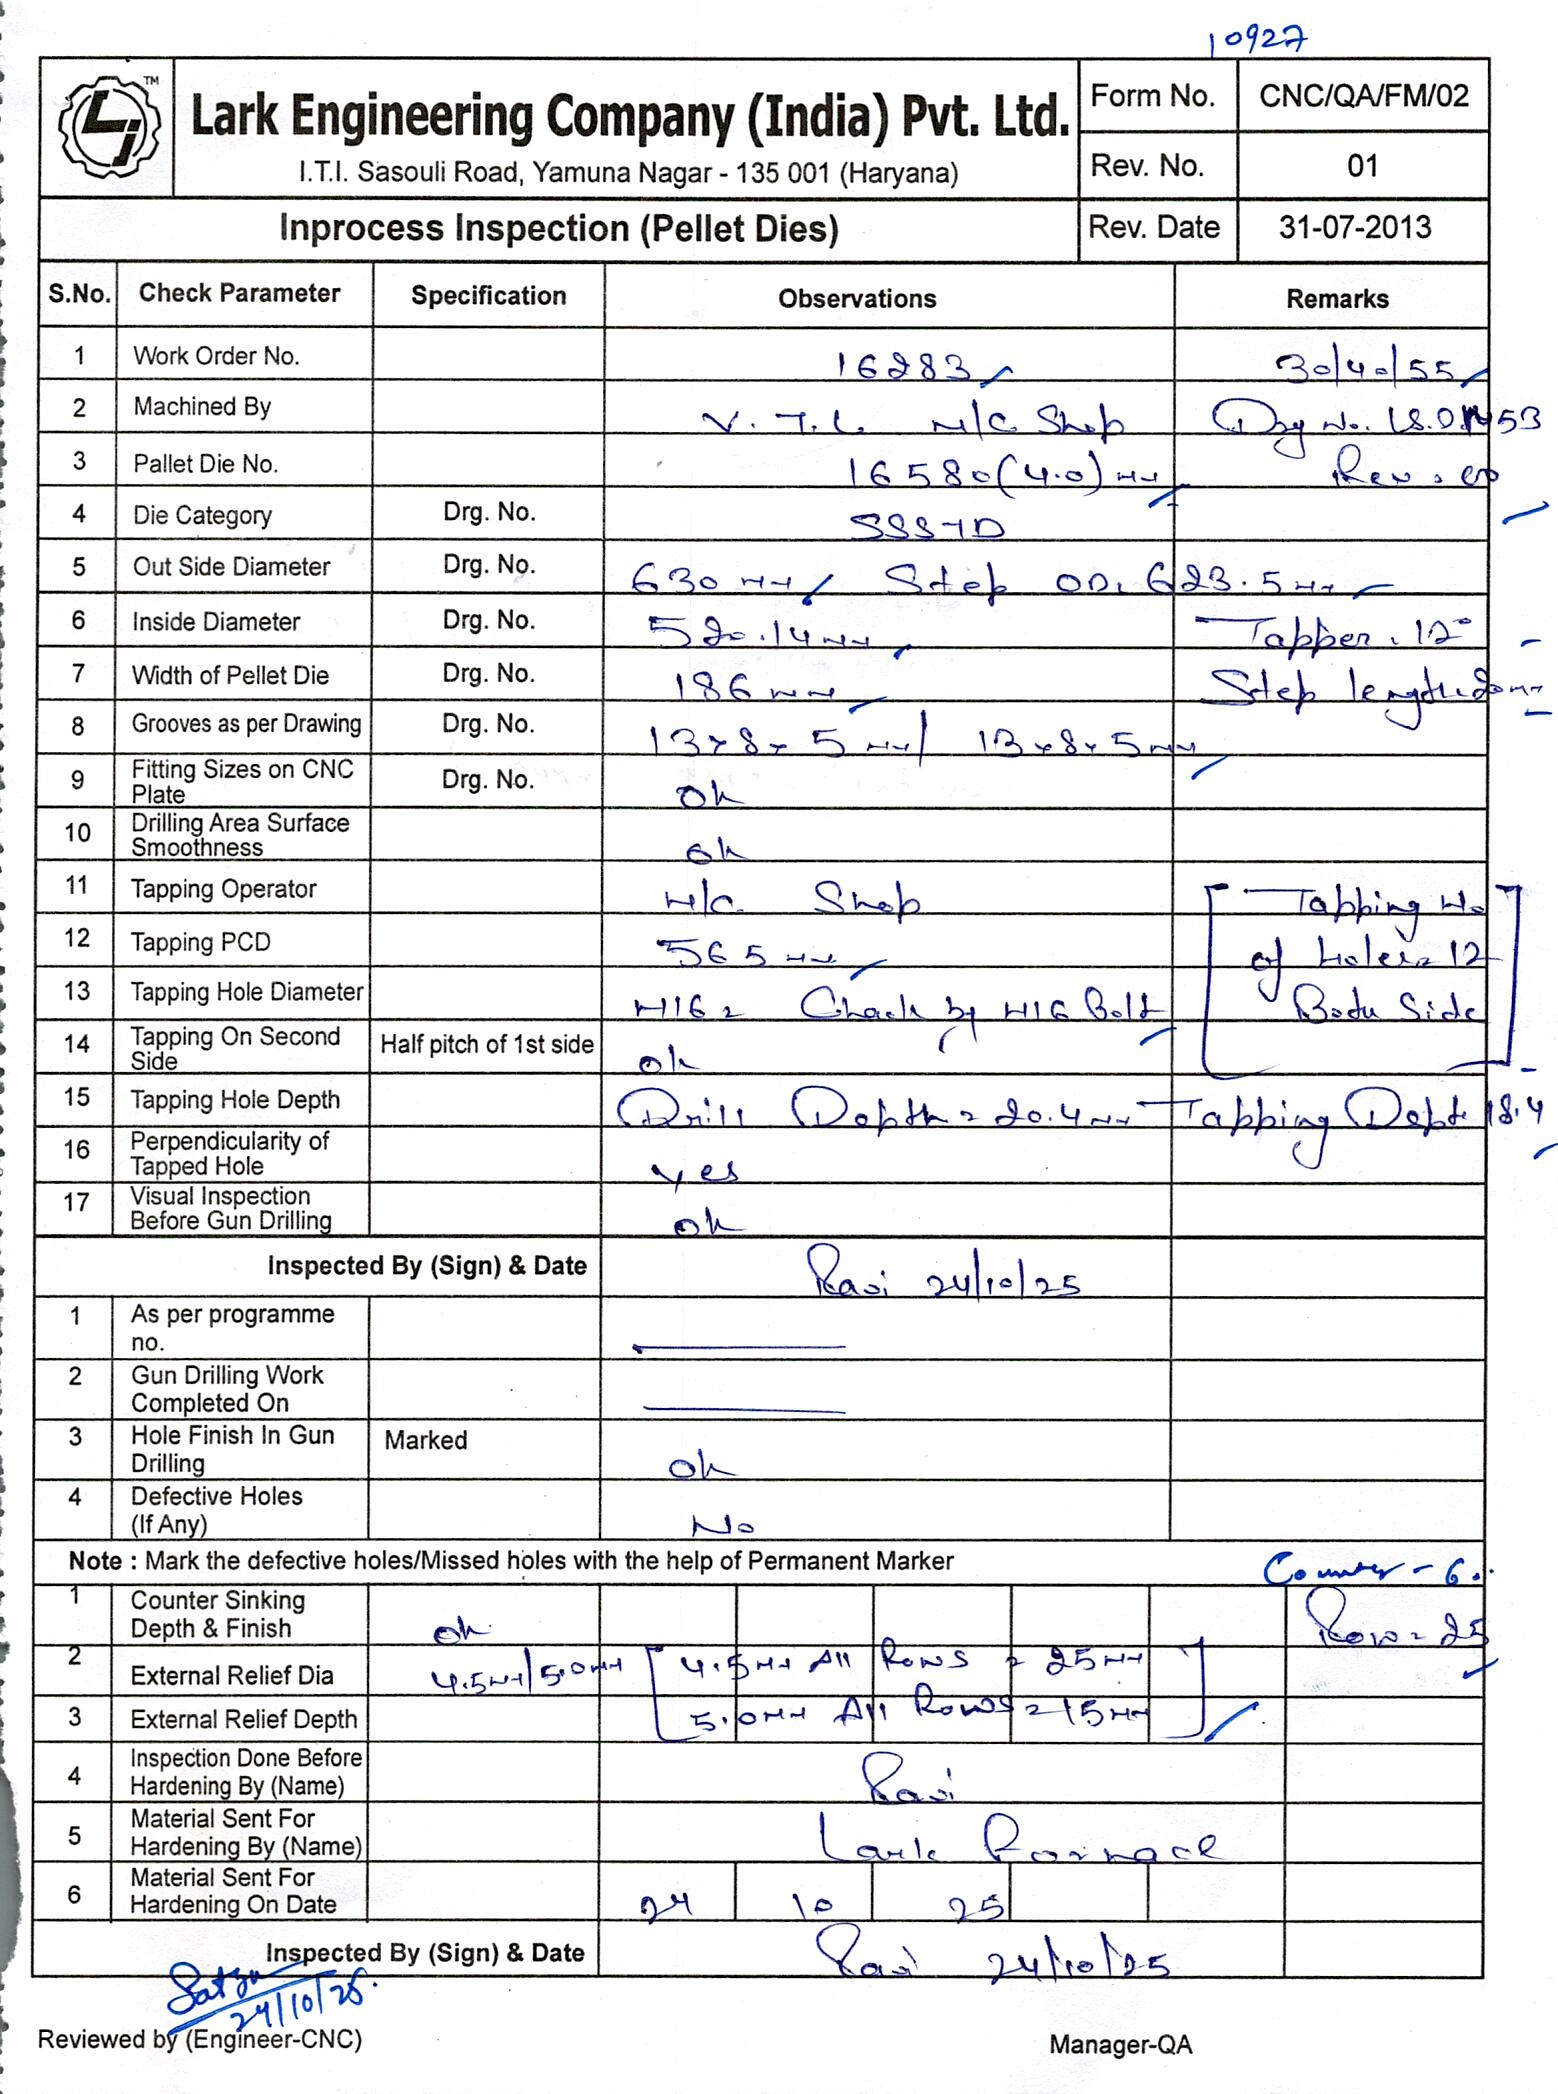 10927
TM
Lark Engineering Company (India) Pvt. Ltd.
I.T.I. Sasouli Road, Yamuna Nagar - 135 001 (Haryana)
Form No. CNC/QA/FM/02
Rev. No. 01
Inprocess Inspection (Pellet Dies) Rev. Date 31-07-2013
S.No. Check Parameter Specification Observations Remarks
1 Work Order No. 16283 30/40/55
2 Machined By V.T.L M/C Shop Drg No. 53
3 Pallet Die No. 16580(4.0)mm Rev
4 Die Category Drg. No. SSSTD
5 Out Side Diameter Drg. No. 630 mm Step OD. 623.5mm
6 Inside Diameter Drg. No. 520.14mm Tapper. 12°
7 Width of Pellet Die Drg. No. 186 mm Step length
8 Grooves as per Drawing Drg. No. 13x8x5mm/ 13x8x5mm
9 Fitting Sizes on CNC Plate Drg. No. Ok
10 Drilling Area Surface Smoothness Ok
11 Tapping Operator M/C Shop Tapping No
12 Tapping PCD 565 mm of holes 12
13 Tapping Hole Diameter M16 = Check by M16 Bolt Side
14 Tapping On Second Side Half pitch of 1st side ok
15 Tapping Hole Depth Drill Depth = 20.4mm Tapping Dept 18.4
16 Perpendicularity of Tapped Hole yes
17 Visual Inspection Before Gun Drilling ok
Inspected By (Sign) & Date Ravi 24/10/25
1 As per programme no.
2 Gun Drilling Work Completed On
3 Hole Finish In Gun Drilling Marked Ok
4 Defective Holes (If Any) No
Note : Mark the defective holes/Missed holes with the help of Permanent Marker Counter - 6
1 Counter Sinking Depth & Finish Ok Row = 25
2 External Relief Dia 4.5mm/5.0mm 4.5mm All Rows = 25mm
3 External Relief Depth 5.0mm All Rows = 15mm
4 Inspection Done Before Hardening By (Name) Ravi
5 Material Sent For Hardening By (Name) Lark Fornace
6 Material Sent For Hardening On Date 24 10 25
Inspected By (Sign) & Date Ravi 24/10/25
24/10/25.
Reviewed by (Engineer-CNC) Manager-QA